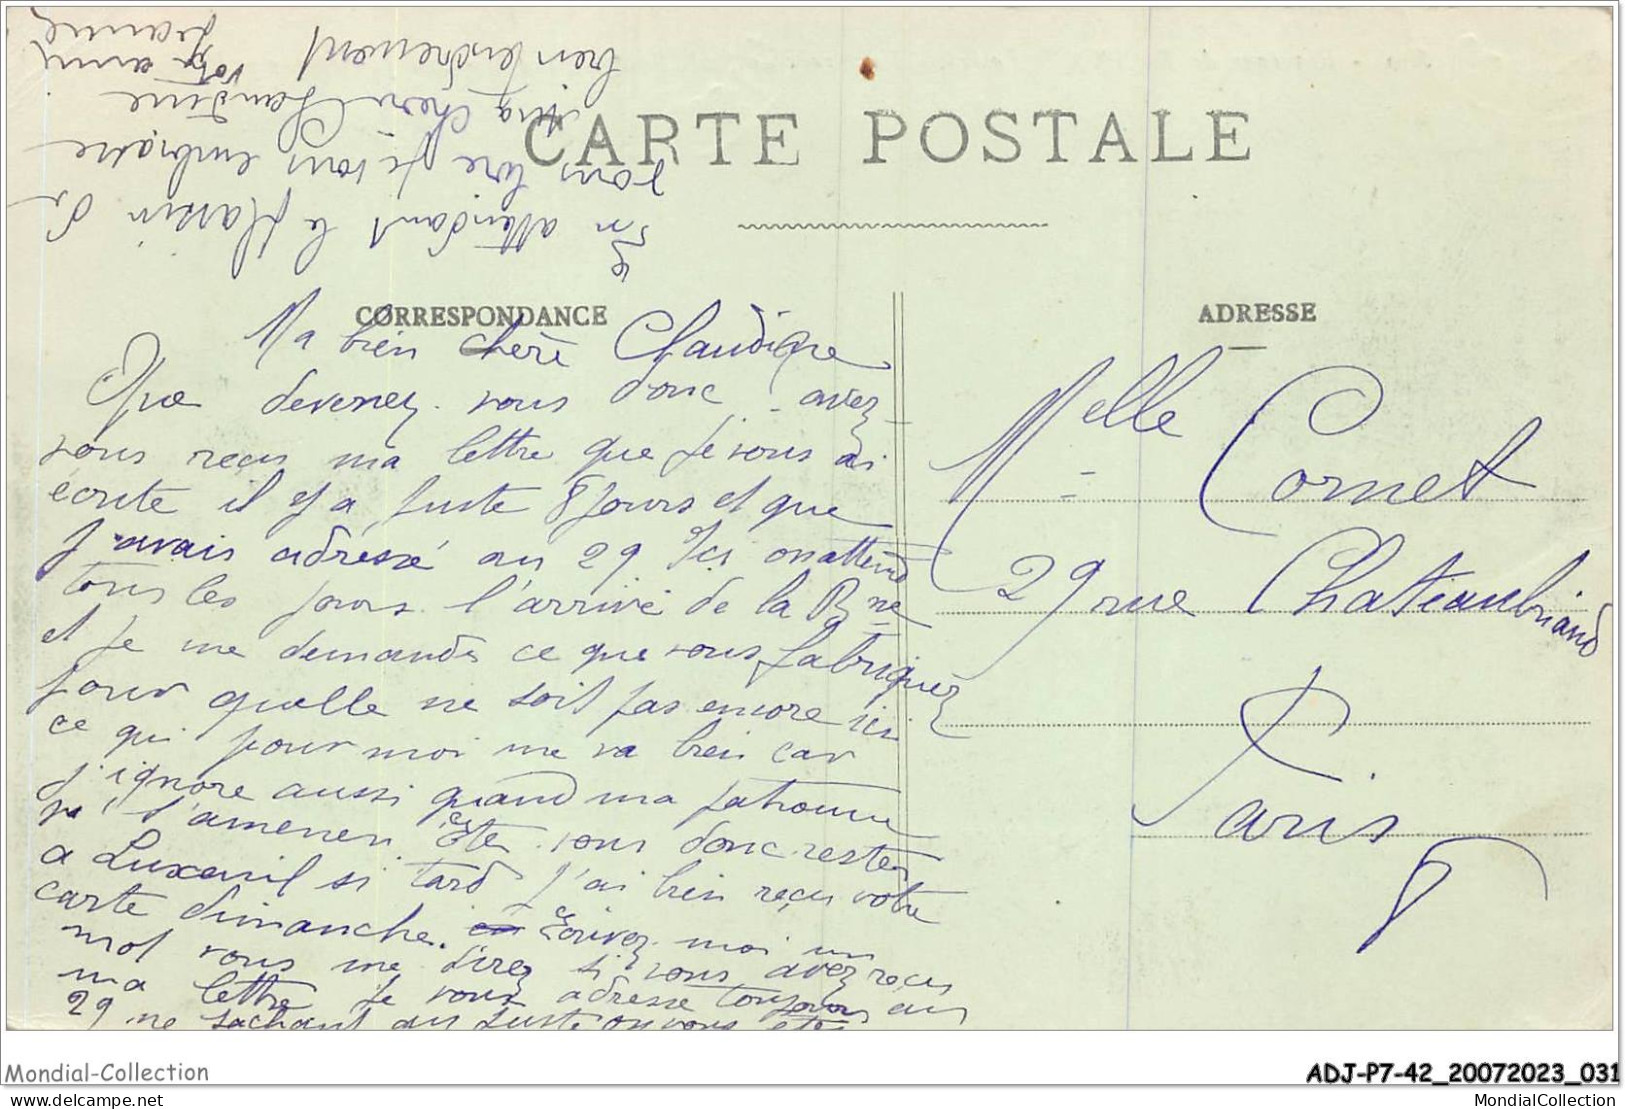 CARTE POSTALE
CORRESPONDANCE
ADRESSE
Ma bien chère Claudine
Que devenez vous donc, avez
vous reçus ma lettre que je vous ai
écrite il y a juste 8 jours et que
j'avais adressé au 29 Ici on attend
tous les jours l'arrivé de la Bne
et je me demande ce que vous fabriquez
pour quelle ne soit pas encore ici
ce qui pour moi me va bien car
j'ignore aussi quand ma patronne
va s'amener êtes vous donc restés
a Luxeuil si tard J'ai bien reçu votre
carte dimanche. Ecrivez moi un
mot vous me direz si vous avez reçus
ma lettre je vous adresse toujours au
29 ne sachant au juste ou vous êtes
En attendant le plaisir de
vous lire je vous embrasse
ma chère Claudine
bien tendrement votre amie
Jeanne
Melle Cornet
29 rue Chateaubriand
Paris
8
Mondial-Collection
ADJ-P7-42_20072023_031
delcampe.net
MondialCollection